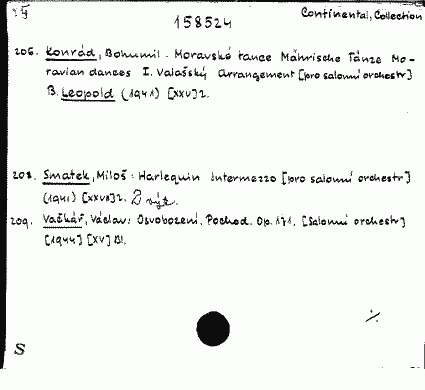 Continental, Collection
158524
206. Konrád, Bohumil. Moravské tance Mährische Tänze Mo-
ravian dances I. Valašský Arrangement [pro salonní orchestr]
B. Leopold (1941) [XXV] 2.
208. Smatek, Miloš: Harlequin Intermezzo [pro salonní orchestr]
(1941) [XXVII] 2. 2 výt.
209. Vačkář, Václav: Osvobození. Pochod. Op. 171. [Salonní orchestr]
[1944] [XV]
S